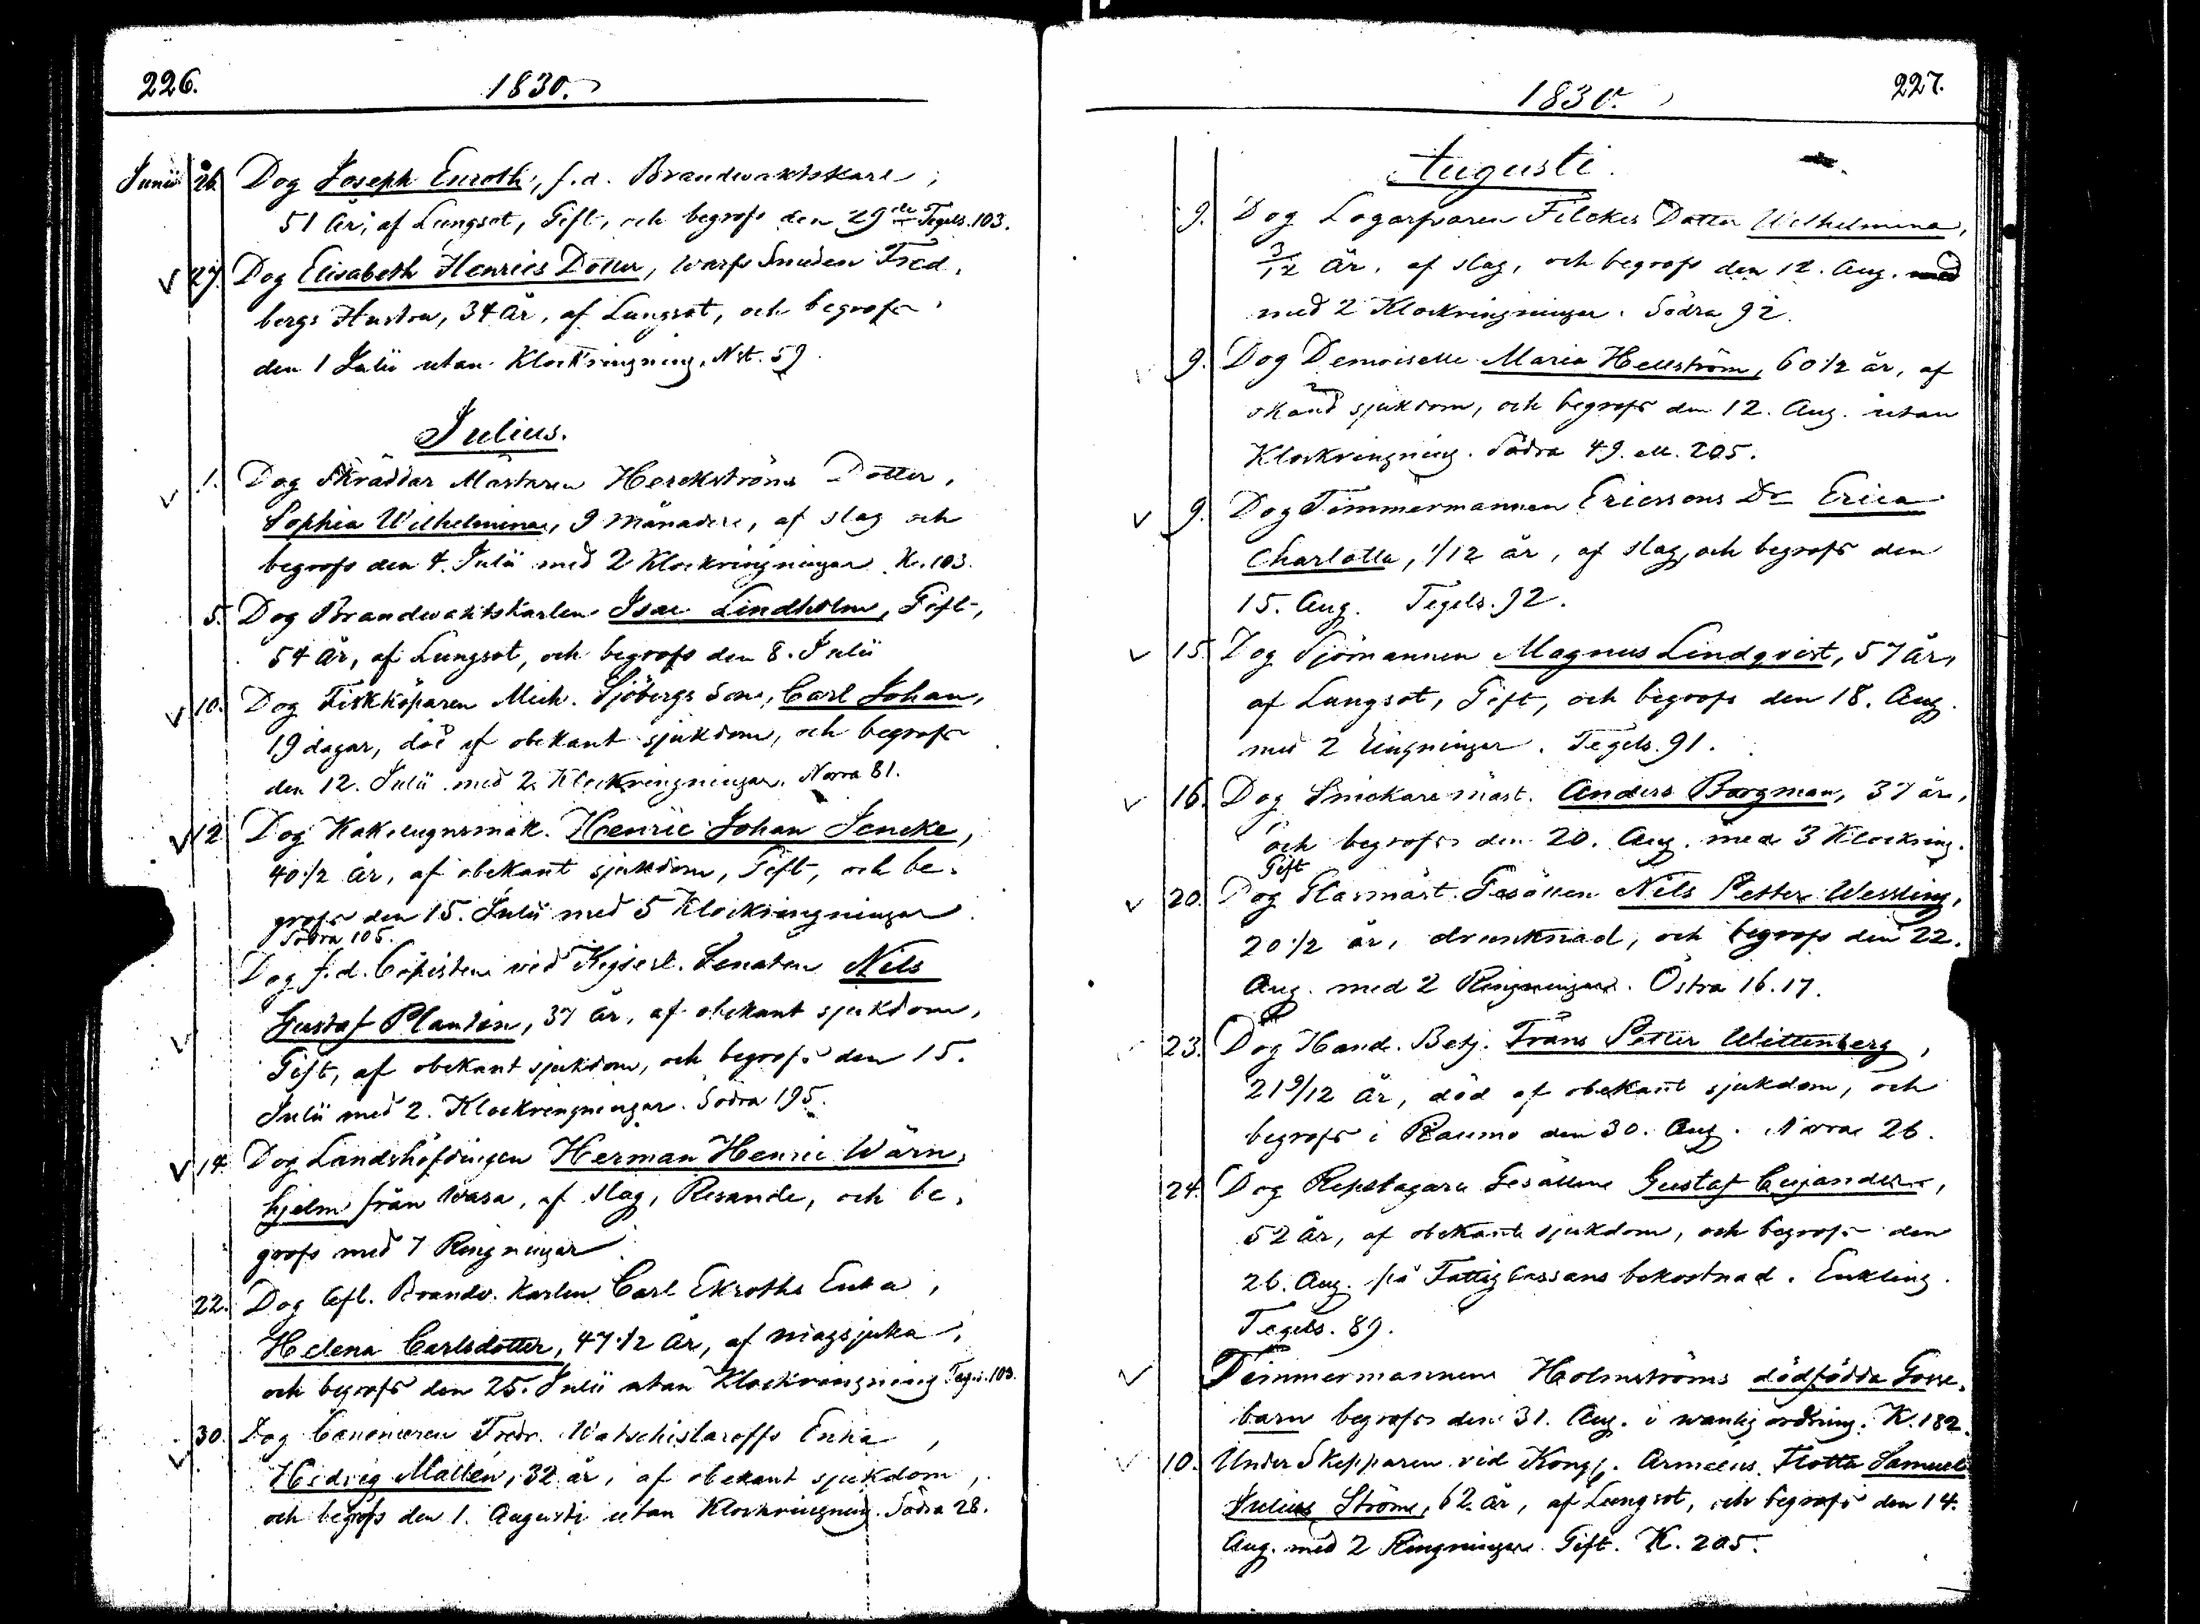 226.
1830.
Junii 26. Dog Joseph Enroth, f.d. Brandwaktskarl,
51 År, af Lungsot, Gift, och begrofs den 29de Tegels. 103.
27. Dog Elisabeth Henrics Dotter, Warfs Smeden Fred.
bergs Hustru, 34 År, af Lungsot, och begrofs
den 1 Julii utan Klockringning. Nst. 59.
Julius.
1. Dog Skräddar Mästaren Herckströms Dotter,
Sophia Wilhelmina, 9 Månader, af slag och
begrofs den 4. Julii med 2 Klockringningar K. 103.
5. Dog Brandwaktskarlen Isac Lindholm, Gift,
54 År, af Lungsot, och begrofs den 8. Julii
10. Dog Fiskköparen Mich. Sjöbergs Son, Carl Johan,
19 dagar, död af obekant sjukdom, och begrofs
den 12. Julii med 2 Klockringningar. Norra 81.
12. Dog Kakelugnsmak. Henric Johan Jencke,
40 1/2 År, af obekant sjukdom, Gift, och be-
grofs den 15. Julii med 5 Klockringningar.
Södra 105.
Dog f.d. Copisten vid Kejserl. Senaten Nils
Gustaf Plantin, 37 År, af obekant sjukdom,
Gift, af obekant sjukdom, och begrofs den 15.
Julii med 2. Klockringningar. Södra 195.
14. Dog Landshöfdingen Herman Henric Wärn-
hjelm från Wasa, af slag, Resande, och be-
grofs med 7 Ringningar
22. Dog Afl. Brandv. Karlen Carl Ekroths Enka,
Helena Carlsdotter, 47 1/2 År, af magsjuka,
och begrofs den 25. Julii utan Klockringning Tegels. 103.
30. Dog Canonieren Fredr. Watschislaroffs Enka,
Hedvig Mallén, 32 år, af obekant sjukdom,
och begrofs den 1. Augusti utan Klockringning. Södra 28.
227.
1830.
Augusti.
9. Dog Logarfvaren Filckes Dotter Wilhelmina,
3/12 År, af slag, och begrofs den 12. Aug.
med 2 Klockringningar. Södra 92.
9. Dog Demoiselle Maria Hellström, 60 1/2 år, af
okänd sjukdom, och begrofs den 12. Aug. utan
Klockringning. Södra 49. ell. 205.
9. Dog Timmermannen Ericssons Dr Erica
Charlotta, 1/12 år, af slag, och begrofs den
15. Aug. Tegels. 92.
15. Dog Sjömannen Magnus Lindqvist, 57 År,
af Lungsot, Gift, och begrofs den 18. Aug.
med 2 Ringningar. Tegels. 91.
16. Dog Snickaremäst. Anders Borgman, 37 år,
och begrofs den 20. Aug. med 3 Klockring.
Gift
20. Dog Glasmäst. Gesällen Nils Petter Wessling,
20 1/2 år, drunknad, och begrofs den 22.
Aug. med 2 Ringningar. Östra 16.17.
23. Dog Hand. Betj. Frans Petter Wittenberg,
21 9/12 År, död af obekant sjukdom, och
begrofs i Raumo den 30. Aug. Norra 26.
24. Dog Repslagare Gesällen Gustaf Cujander,
52 År, af obekant sjukdom, och begrofs den
26. Aug. på Fattig Cassans bekostnad. Enkling.
Tegels. 89.
Timmermannens Holmströms dödfödda Gosse-
barn begrofs den 31. Aug. i wanlig ordning. K. 182.
10. Under Skepparen vid Kongl. Arméens Flotta Samuel
Julius Ström, 62 År, af Lungsot, och begrofs den 14.
Aug. med 2 Ringningar. Gift. K. 205.